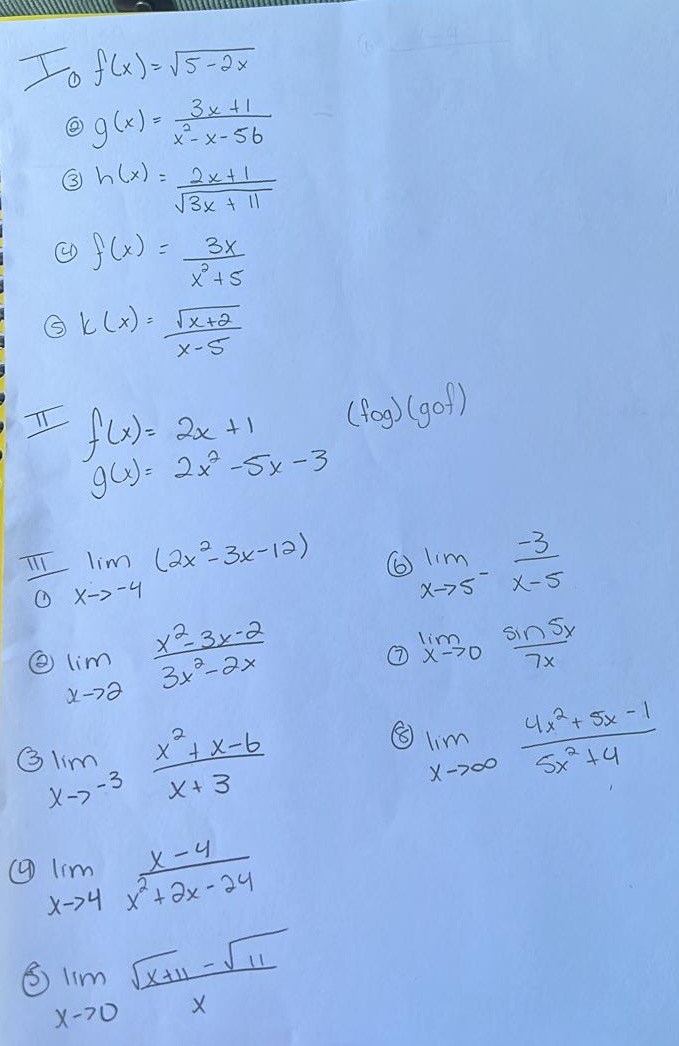 I ① f(x) = √(5-2x)
② g(x) = (3x+1)/(x²-x-56)
③ h(x) = (2x+1)/√(3x+11)
④ f(x) = 3x/(x²+5)
⑤ k(x) = √(x+2)/(x-5)
II f(x) = 2x+1 (fog)(gof)
g(x) = 2x²-5x-3
III ① lim x->-4 (2x²-3x-12)
② lim x->2 (x²-3x-2)/(3x²-2x)
③ lim x->-3 (x²+x-6)/(x+3)
④ lim x->4 (x-4)/(x²+2x-24)
⑤ lim x->0 (√(x+11)-√11)/x
⑥ lim x->5⁻ -3/(x-5)
⑦ lim x->0 sin5x/7x
⑧ lim x->∞ (4x²+5x-1)/(5x²+4)